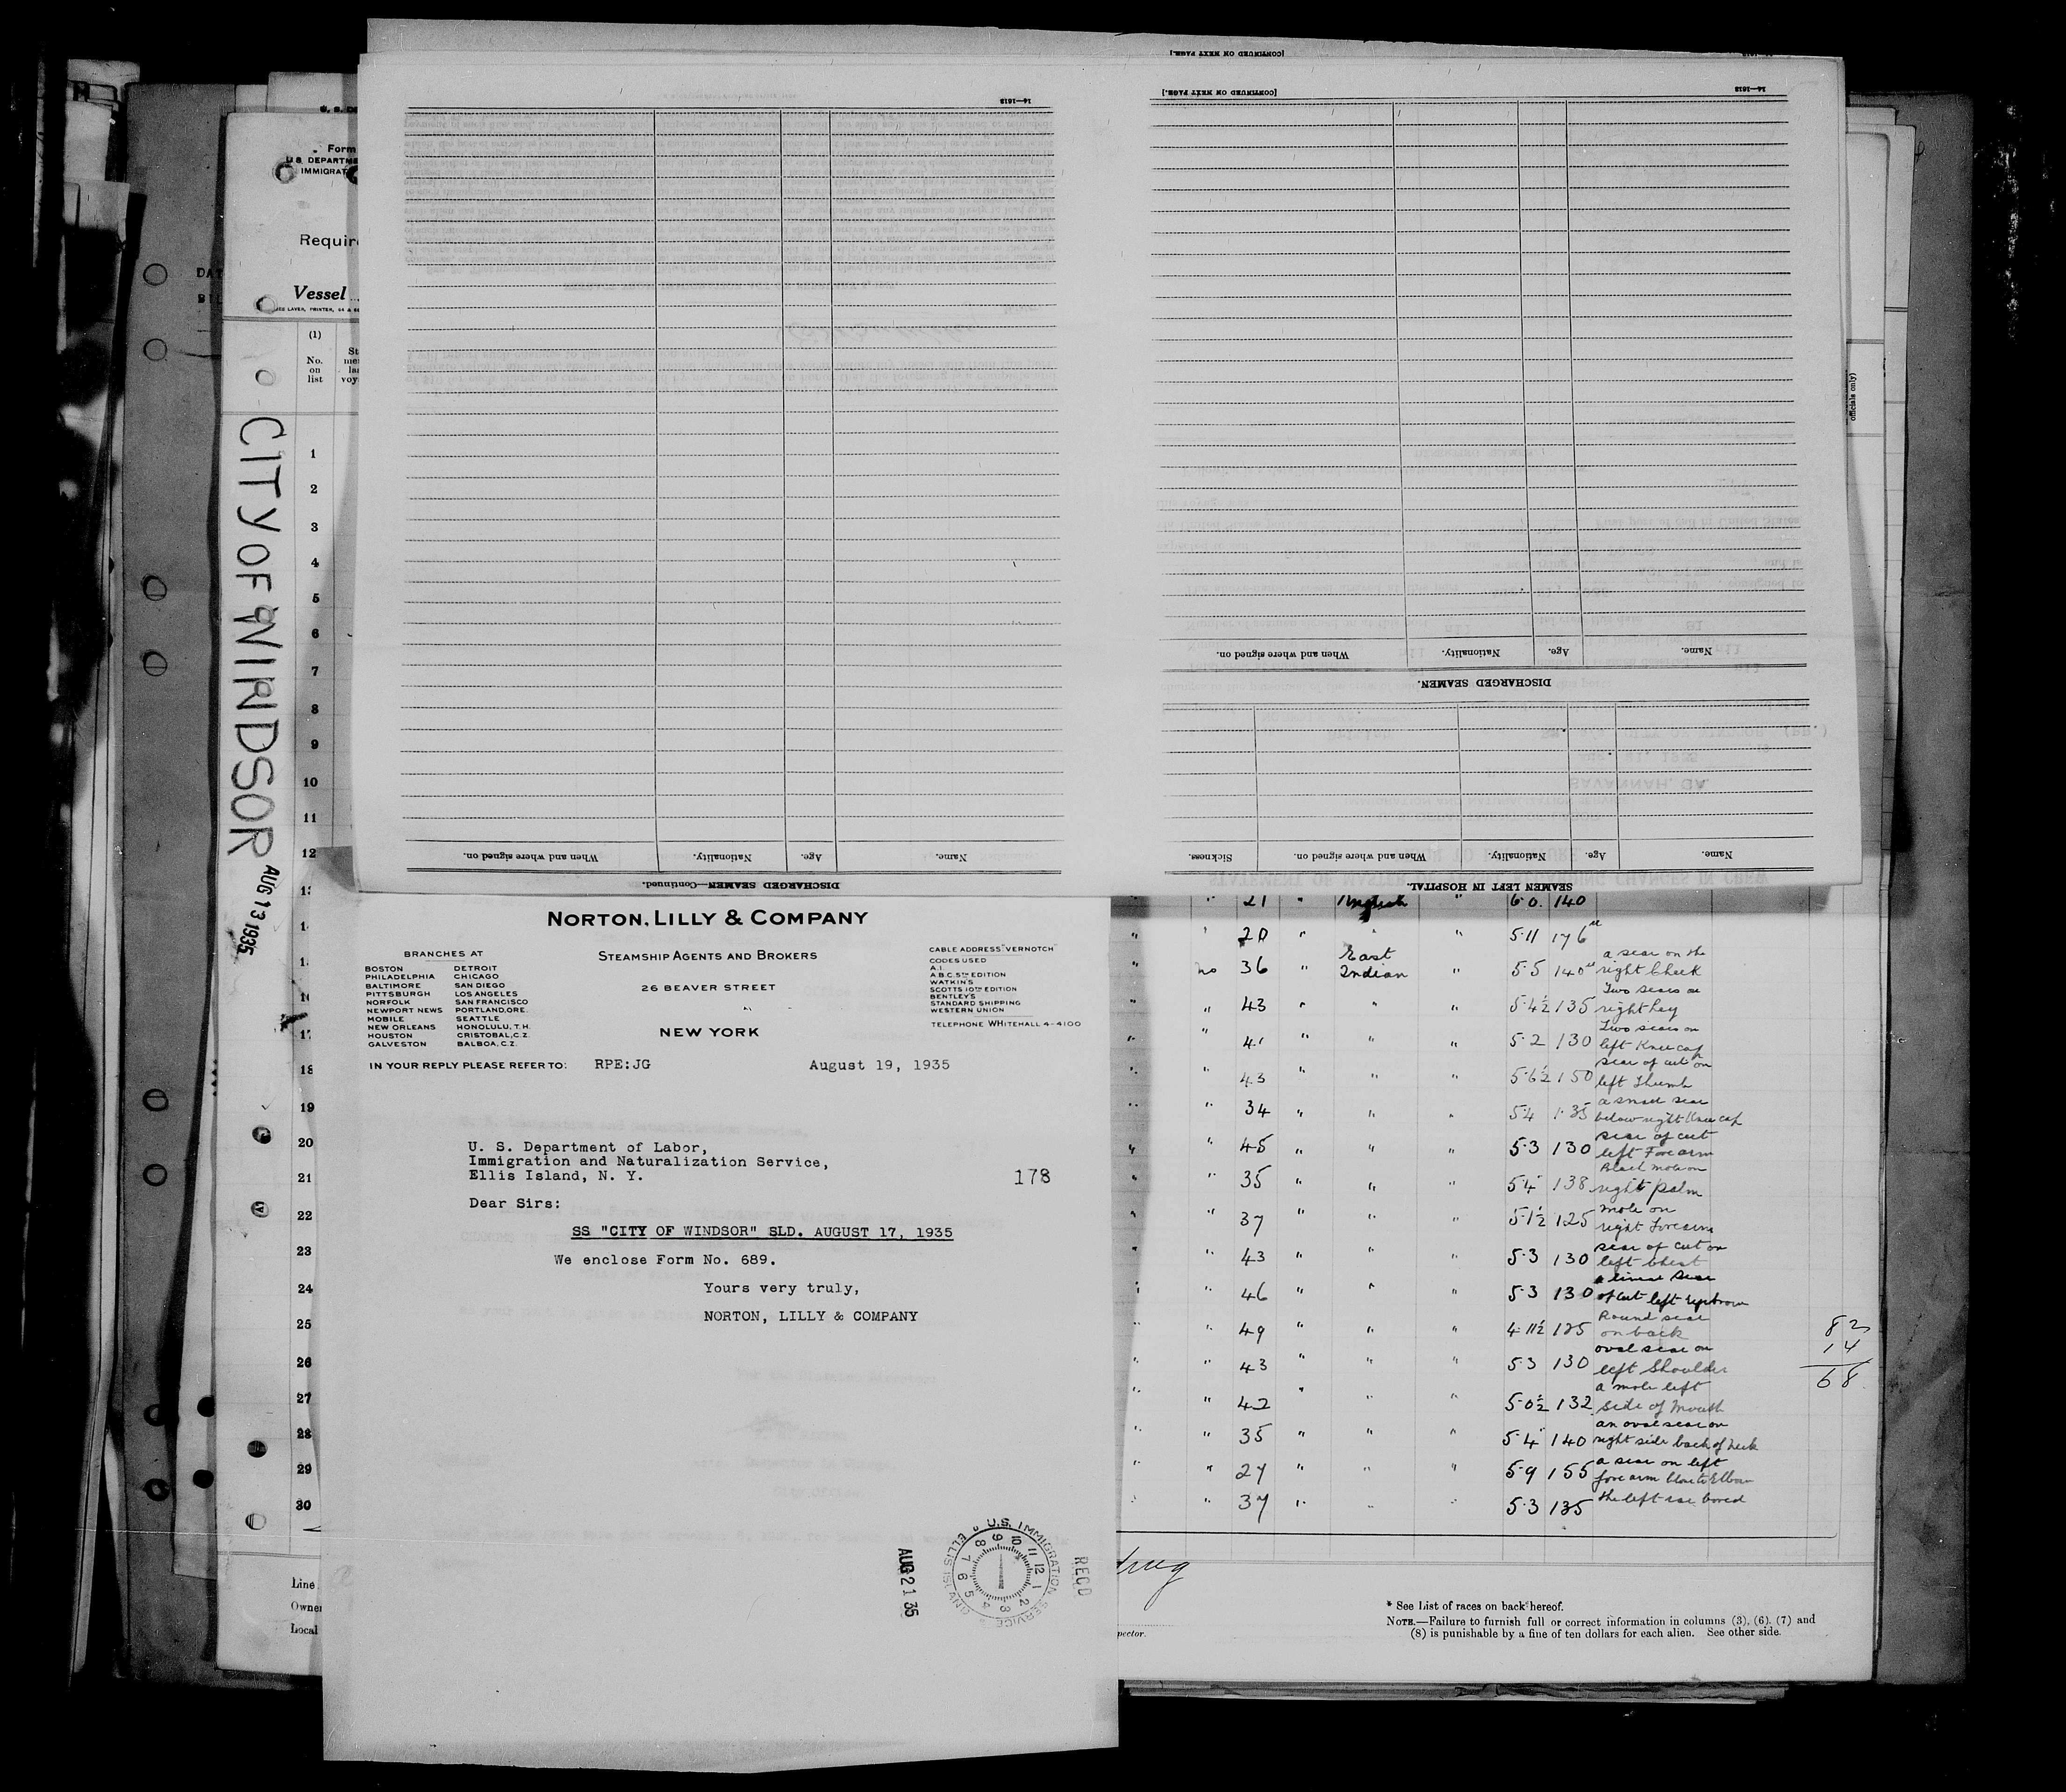 [CONTINUED ON NEXT PAGE.]
14—1618
[CONTINUED ON NEXT PAGE.]
14—1618
Name. Age. Nationality. When and where signed on.
DISCHARGED SEAMEN.
Name. Age. Nationality. When and where signed on. Sickness.
SEAMEN LEFT IN HOSPITAL.
Name. Age. Nationality. When and where signed on.
DISCHARGED SEAMEN—Continued.
Form
U.S. DEPARTM
IMMIGRAT
Requir
Vessel
(1)
No.
on
list
CITY OF WINDSOR
AUG 13 1935
1
2
3
4
5
6
7
8
9
10
11
12
18
19
20
21
22
23
24
25
26
27
28
29
30
Line
Owner
Local
officials only)
NORTON, LILLY & COMPANY
STEAMSHIP AGENTS AND BROKERS
26 BEAVER STREET
NEW YORK
BRANCHES AT
BOSTON DETROIT
PHILADELPHIA CHICAGO
BALTIMORE SAN DIEGO
PITTSBURGH LOS ANGELES
NORFOLK SAN FRANCISCO
NEWPORT NEWS PORTLAND, ORE.
MOBILE SEATTLE
NEW ORLEANS HONOLULU, T. H.
HOUSTON CRISTOBAL, C. Z.
GALVESTON BALBOA, C. Z.
CABLE ADDRESS "VERNOTCH"
CODES USED
A.I.
A.B.C. 5TH EDITION
WATKINS
SCOTTS 10TH EDITION
BENTLEY'S
STANDARD SHIPPING
WESTERN UNION
TELEPHONE WHITEHALL 4-4100
IN YOUR REPLY PLEASE REFER TO: RPE:JG August 19, 1935
U. S. Department of Labor,
Immigration and Naturalization Service,
Ellis Island, N. Y.
178
Dear Sirs:
SS "CITY OF WINDSOR" SLD. AUGUST 17, 1935
We enclose Form No. 689.
Yours very truly,
NORTON, LILLY & COMPANY
RECD
AUG 21 35
U.S. IMMIGRATION SERVICE
ELLIS ISLAND
21 " English " 6.0. 140
20 " " " 5·11 176
no 36 " East Indian " 5·5 140 a scar on the right Cheek
" 43 " " " 5·4½ 135 Two scars on right leg
" 41 " " " 5·2 130 Two scars on left Knee cap
" 43 " " " 5·6½ 150 scar of cut on left Thumb
" 34 " " " 5·4 135 a small scar below right Knee cap
" 45 " " " 5·3 130 scar of cut left Forearm
" 35 " " " 5·4 138 Black mole on right palm
" 37 " " " 5·1½ 125 mole on right Forearm
" 43 " " " 5·3 130 scar of cut on left Chest
" 46 " " " 5·3 130 a linear scar of cut left Eyebrow
" 49 " " " 4·11½ 125 Round scar on back
" 43 " " " 5·3 130 oval scar on left Shoulder
" 42 " " " 5·0½ 132 a mole left side of Mouth
" 35 " " " 5·4 140 an oval scar on right side back of neck
" 27 " " " 5·9 155 a scar on left forearm
" 37 " " " 5·3 135 the left ear bored
82
14
68
pector.
* See List of races on back hereof.
NOTE.—Failure to furnish full or correct information in columns (3), (6), (7) and
(8) is punishable by a fine of ten dollars for each alien. See other side.